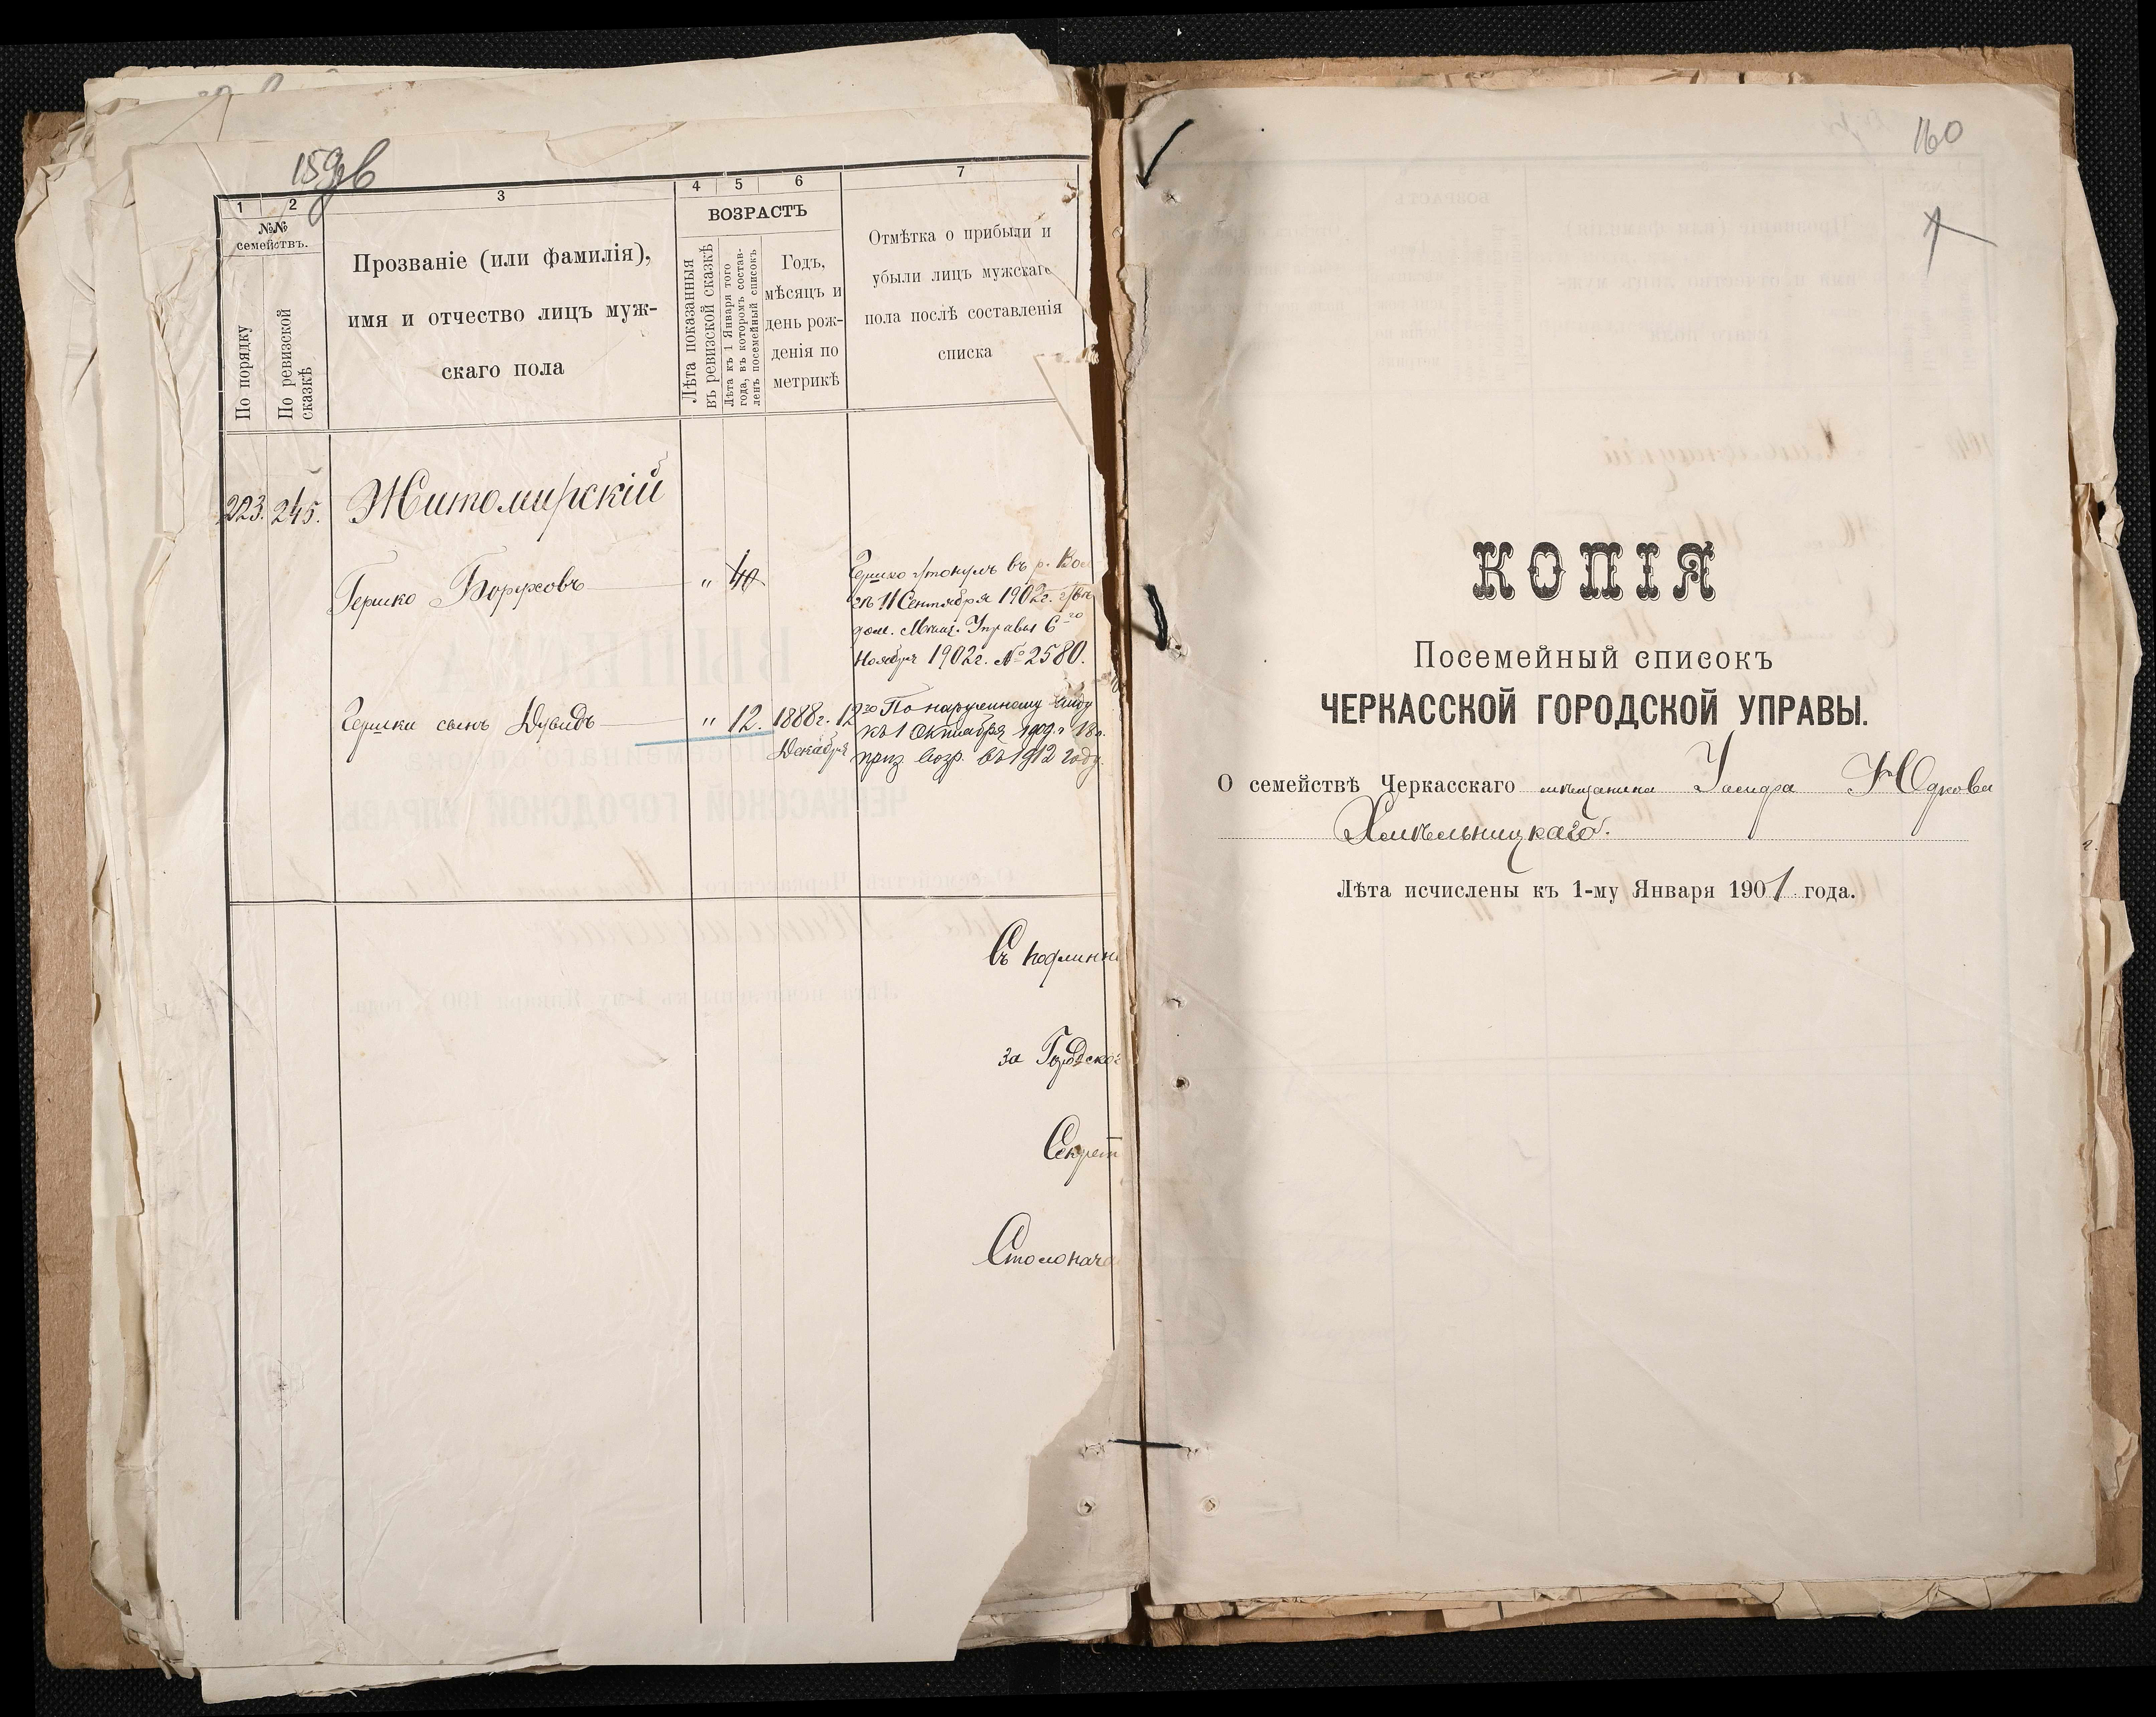 159об
1
2
3
4
5
6
7
№№
семействъ.
По порядку
По ревизской
сказкѣ
Прозваніе (или фамилія),
имя и отчество лицъ муж-
скаго пола
ВОЗРАСТЪ
Лѣта показанныя
въ ревизской сказкѣ
Лѣта къ 1 Января того
года, въ которомъ состав-
ленъ посемейный списокъ
Годъ,
мѣсяцъ и
день рож-
денія по
метрикѣ
Отмѣтка о прибыли и
убыли лицъ мужскаго
пола послѣ составленія
списка
223. 245. Житомирскій
Гершко Боруховъ " 40
Гершко утонулъ въ р.
11 Сентября 1902г.
Управы 6го
Ноября 1902г. № 2580.
Гершки сынъ Дувидъ " 12. 1888г. 12
Декабря
По наружному виду
къ 1 Октября 1909 г. 18 л.
приз. возр. въ 1912 году.
Съ подлинн
за Городског
Секрет
Столонача
160
КОПІЯ
Посемейный списокъ
ЧЕРКАССКОЙ ГОРОДСКОЙ УПРАВЫ.
О семействѣ Черкасскаго мѣщанина Юдкова
Хмѣльницкаго.
Лѣта исчислены къ 1-му Января 1901 года.